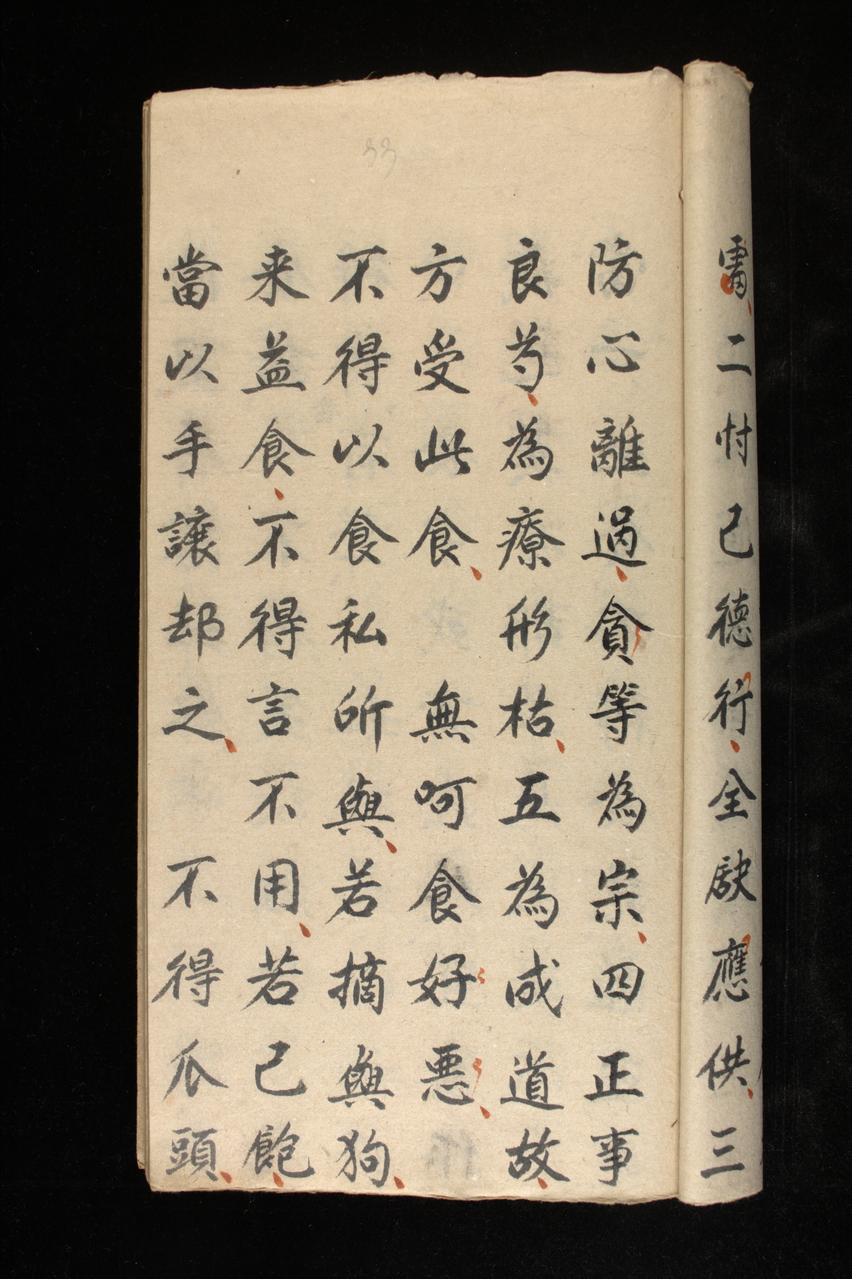 33
二忖己德行全缺應供三
防心離過貪等為宗四正事
良芍為療形枯五為成道故
方受此食 無呵食好悪
不得以食私所與若摘與狗
来益食不得言不用若己飽
當以手讓却之 不得瓜頭